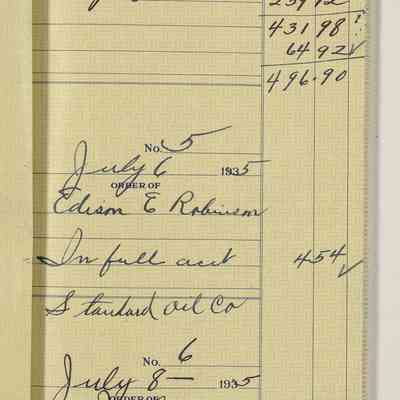 431 98
64 92 ✓
496.90
No. 5
July 6 1935
ORDER OF
Edison E Robinson
In full acct 4 54 ✓
Standard Oil Co
No. 6
July 8 — 1935
ORDER OF